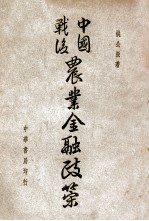 著
中國
戰後
農業金融政策
中華書局印行